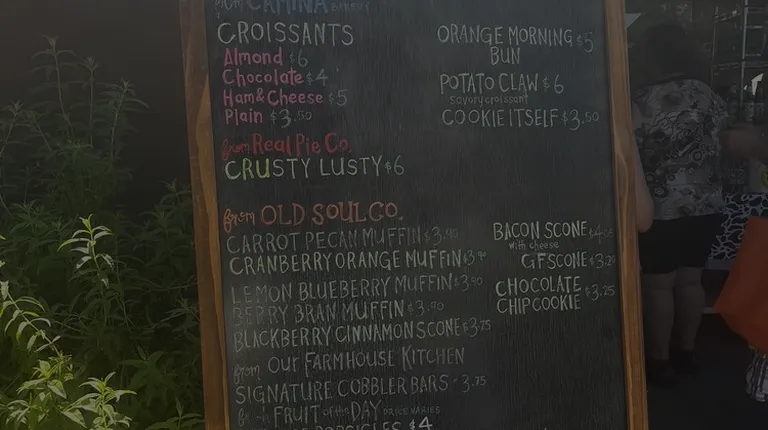 from CAMINA BAKERY
CROISSANTS
Almond $6
Chocolate $4
Ham & Cheese $5
Plain $3.50
ORANGE MORNING $5
BUN
POTATO CLAW $6
savory croissant
COOKIE ITSELF $3.50
from Real Pie Co.
CRUSTY LUSTY $6
from OLD SOUL CO.
CARROT PECAN MUFFIN $3.90
CRANBERRY ORANGE MUFFIN $3.90
LEMON BLUEBERRY MUFFIN $3.90
BERRY BRAN MUFFIN $3.90
BLACKBERRY CINNAMON SCONE $3.75
BACON SCONE
with cheese
GF SCONE
CHOCOLATE $3.25
CHIP COOKIE
from OUR FARMHOUSE KITCHEN
SIGNATURE COBBLER BARS $3.75
FRUIT of the DAY PRICE VARIES
POPSICLES $4